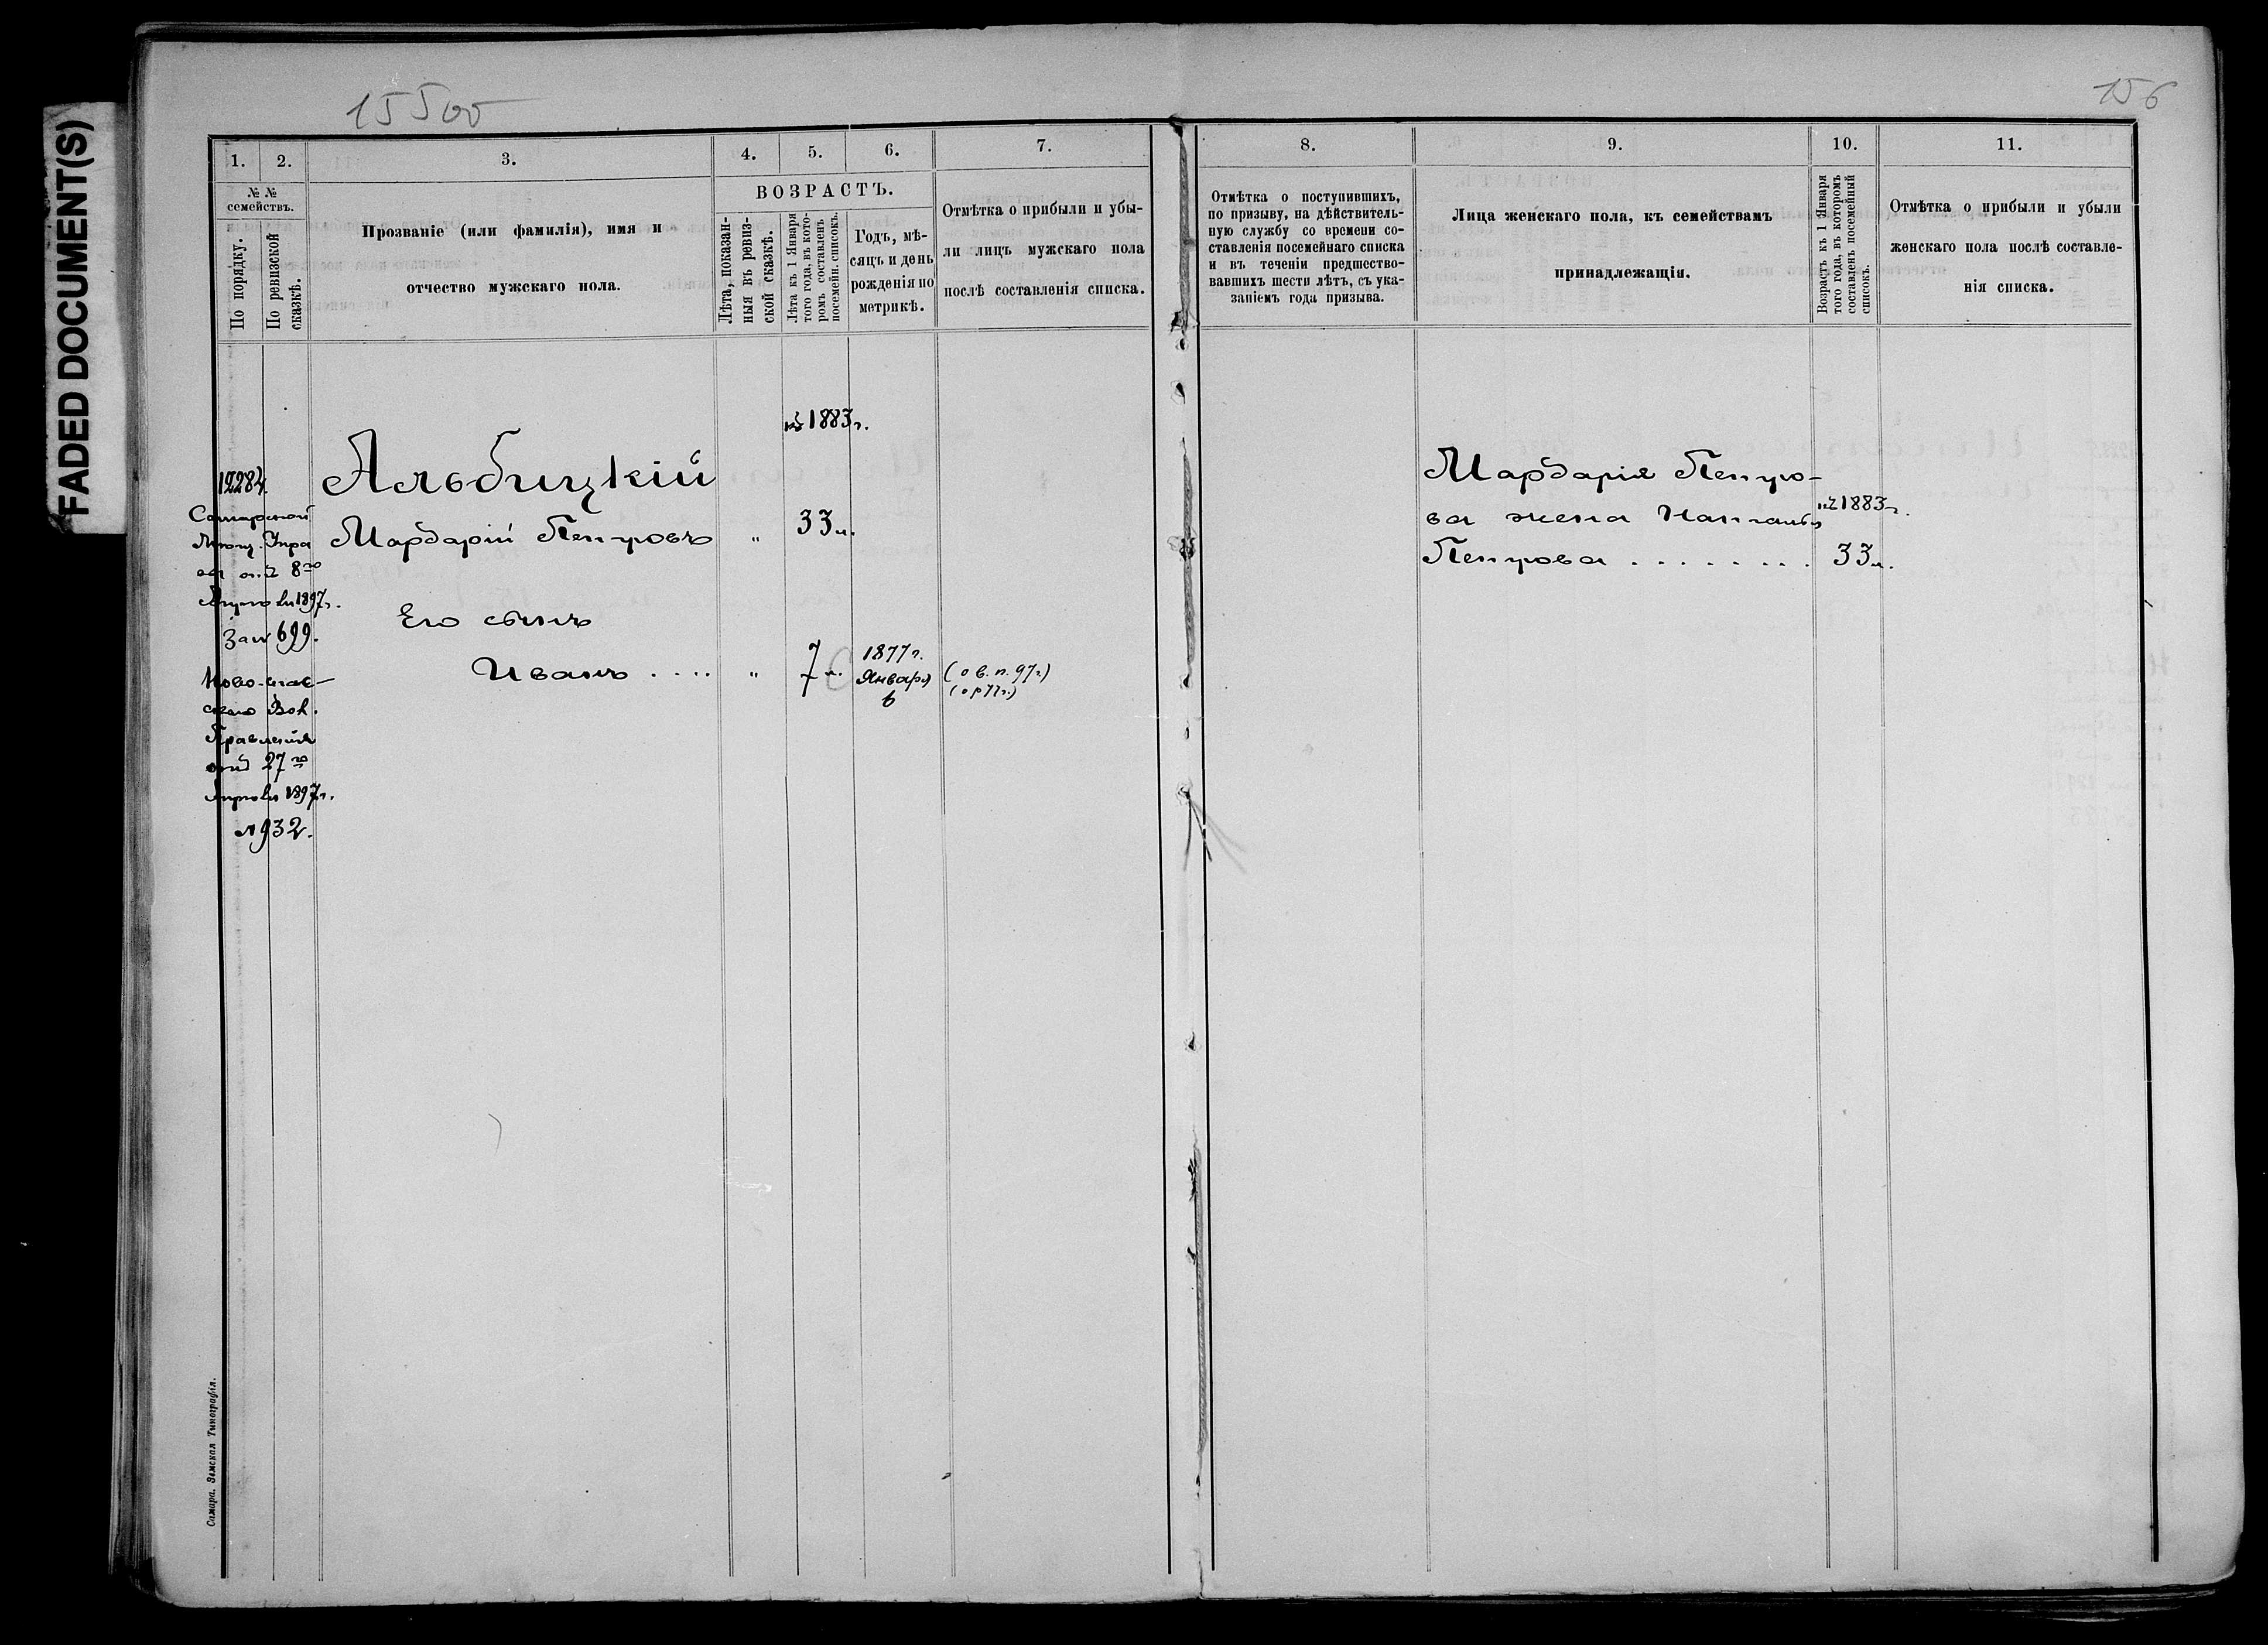 FADED DOCUMENT(S)
15500
156
1.
2.
3.
4.
5.
6.
7.
8.
9.
10.
11.
№ №
семействъ.
По порядку.
По ревизской
сказкѣ.
Прозваніе (или фамилія), имя и
отчество мужскаго пола.
ВОЗРАСТЪ.
Лѣта, показан-
ныя въ ревиз-
ской сказкѣ.
Лѣта къ 1 Января
того года, въ кото-
ромъ составленъ
посемейн. списокъ.
Годъ, мѣ-
сяцъ и день
рожденія по
метрикѣ.
Отмѣтка о прибыли и убы-
ли лицъ мужскаго пола
послѣ составленія списка.
Отмѣтка о поступившихъ,
по призыву, на дѣйствитель-
ную службу со времени со-
ставленія посемейнаго списка
и въ теченіи предшество-
вавшихъ шести лѣтъ, съ ука-
заніемъ года призыва.
Лица женскаго пола, къ семействамъ
принадлежащія.
Возрастъ къ 1 Января
того года, въ которомъ
составленъ посемейный
списокъ.
Отмѣтка о прибыли и убыли
женскаго пола послѣ составле-
нія списка.
12284
Самарской
Мѣщ. Упра
вы отъ 8го
1897г.
За № 699.
Ново-
Вол.
Правленія
отъ 27го
1897г.
№ 932.
къ 1883г.
Альбицкій
Мардарій Петровъ " 33 л.
Его сынъ
Иванъ . . . . " 7 л.
1877г.
Января
6
(о в. п. 97г.)
Мардарія Петро-
ва жена Наталья
Петрова . . . . . . . .
къ 1883г.
33 л.
Самара. Земская Типографія.